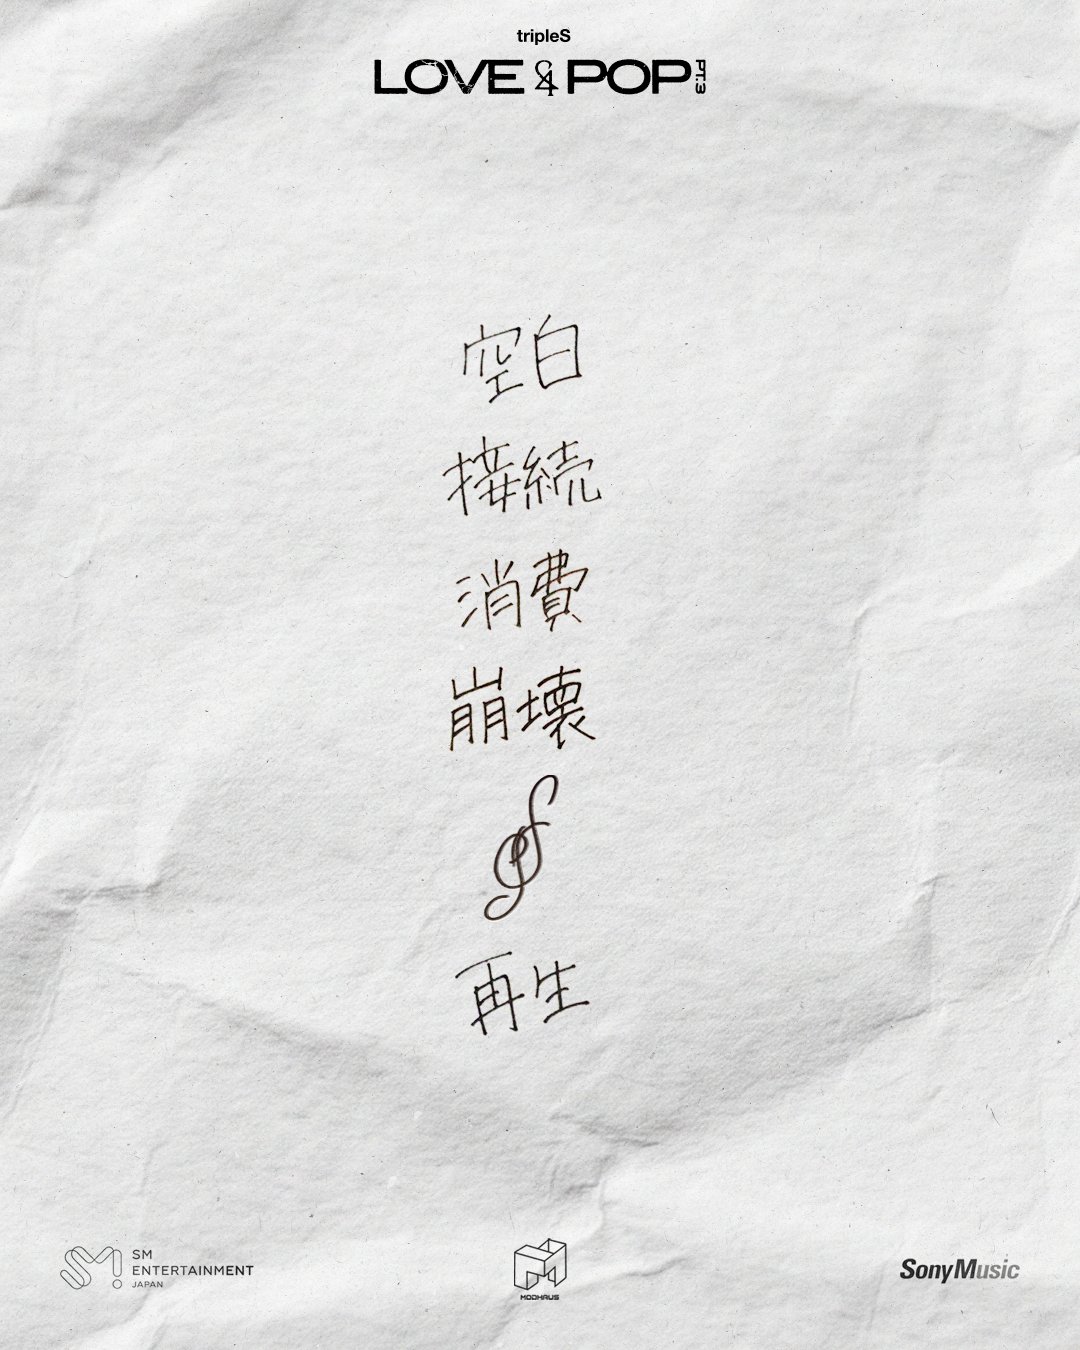 tripleS
LOVE & POP PT.3
空白
接続
消費
崩壊
&
再生
SM
ENTERTAINMENT
JAPAN
MODHAUS
SonyMusic